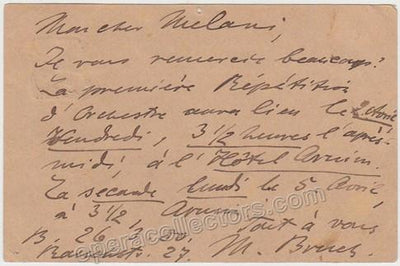 Mon cher Melani,
Je vous remercie beaucoup!
La première Répétition
d'Orchestre aura lieu le 2 Avril
Vendredi, 3 1/2 heures l'après-
midi, à l'Hôtel Arnim.
La seconde lundi le 5 Avril,
à 3 1/2, Arnim.
Tout à vous
B. 26. 3. 80. M. Bruch.
27.
operacollectors.com